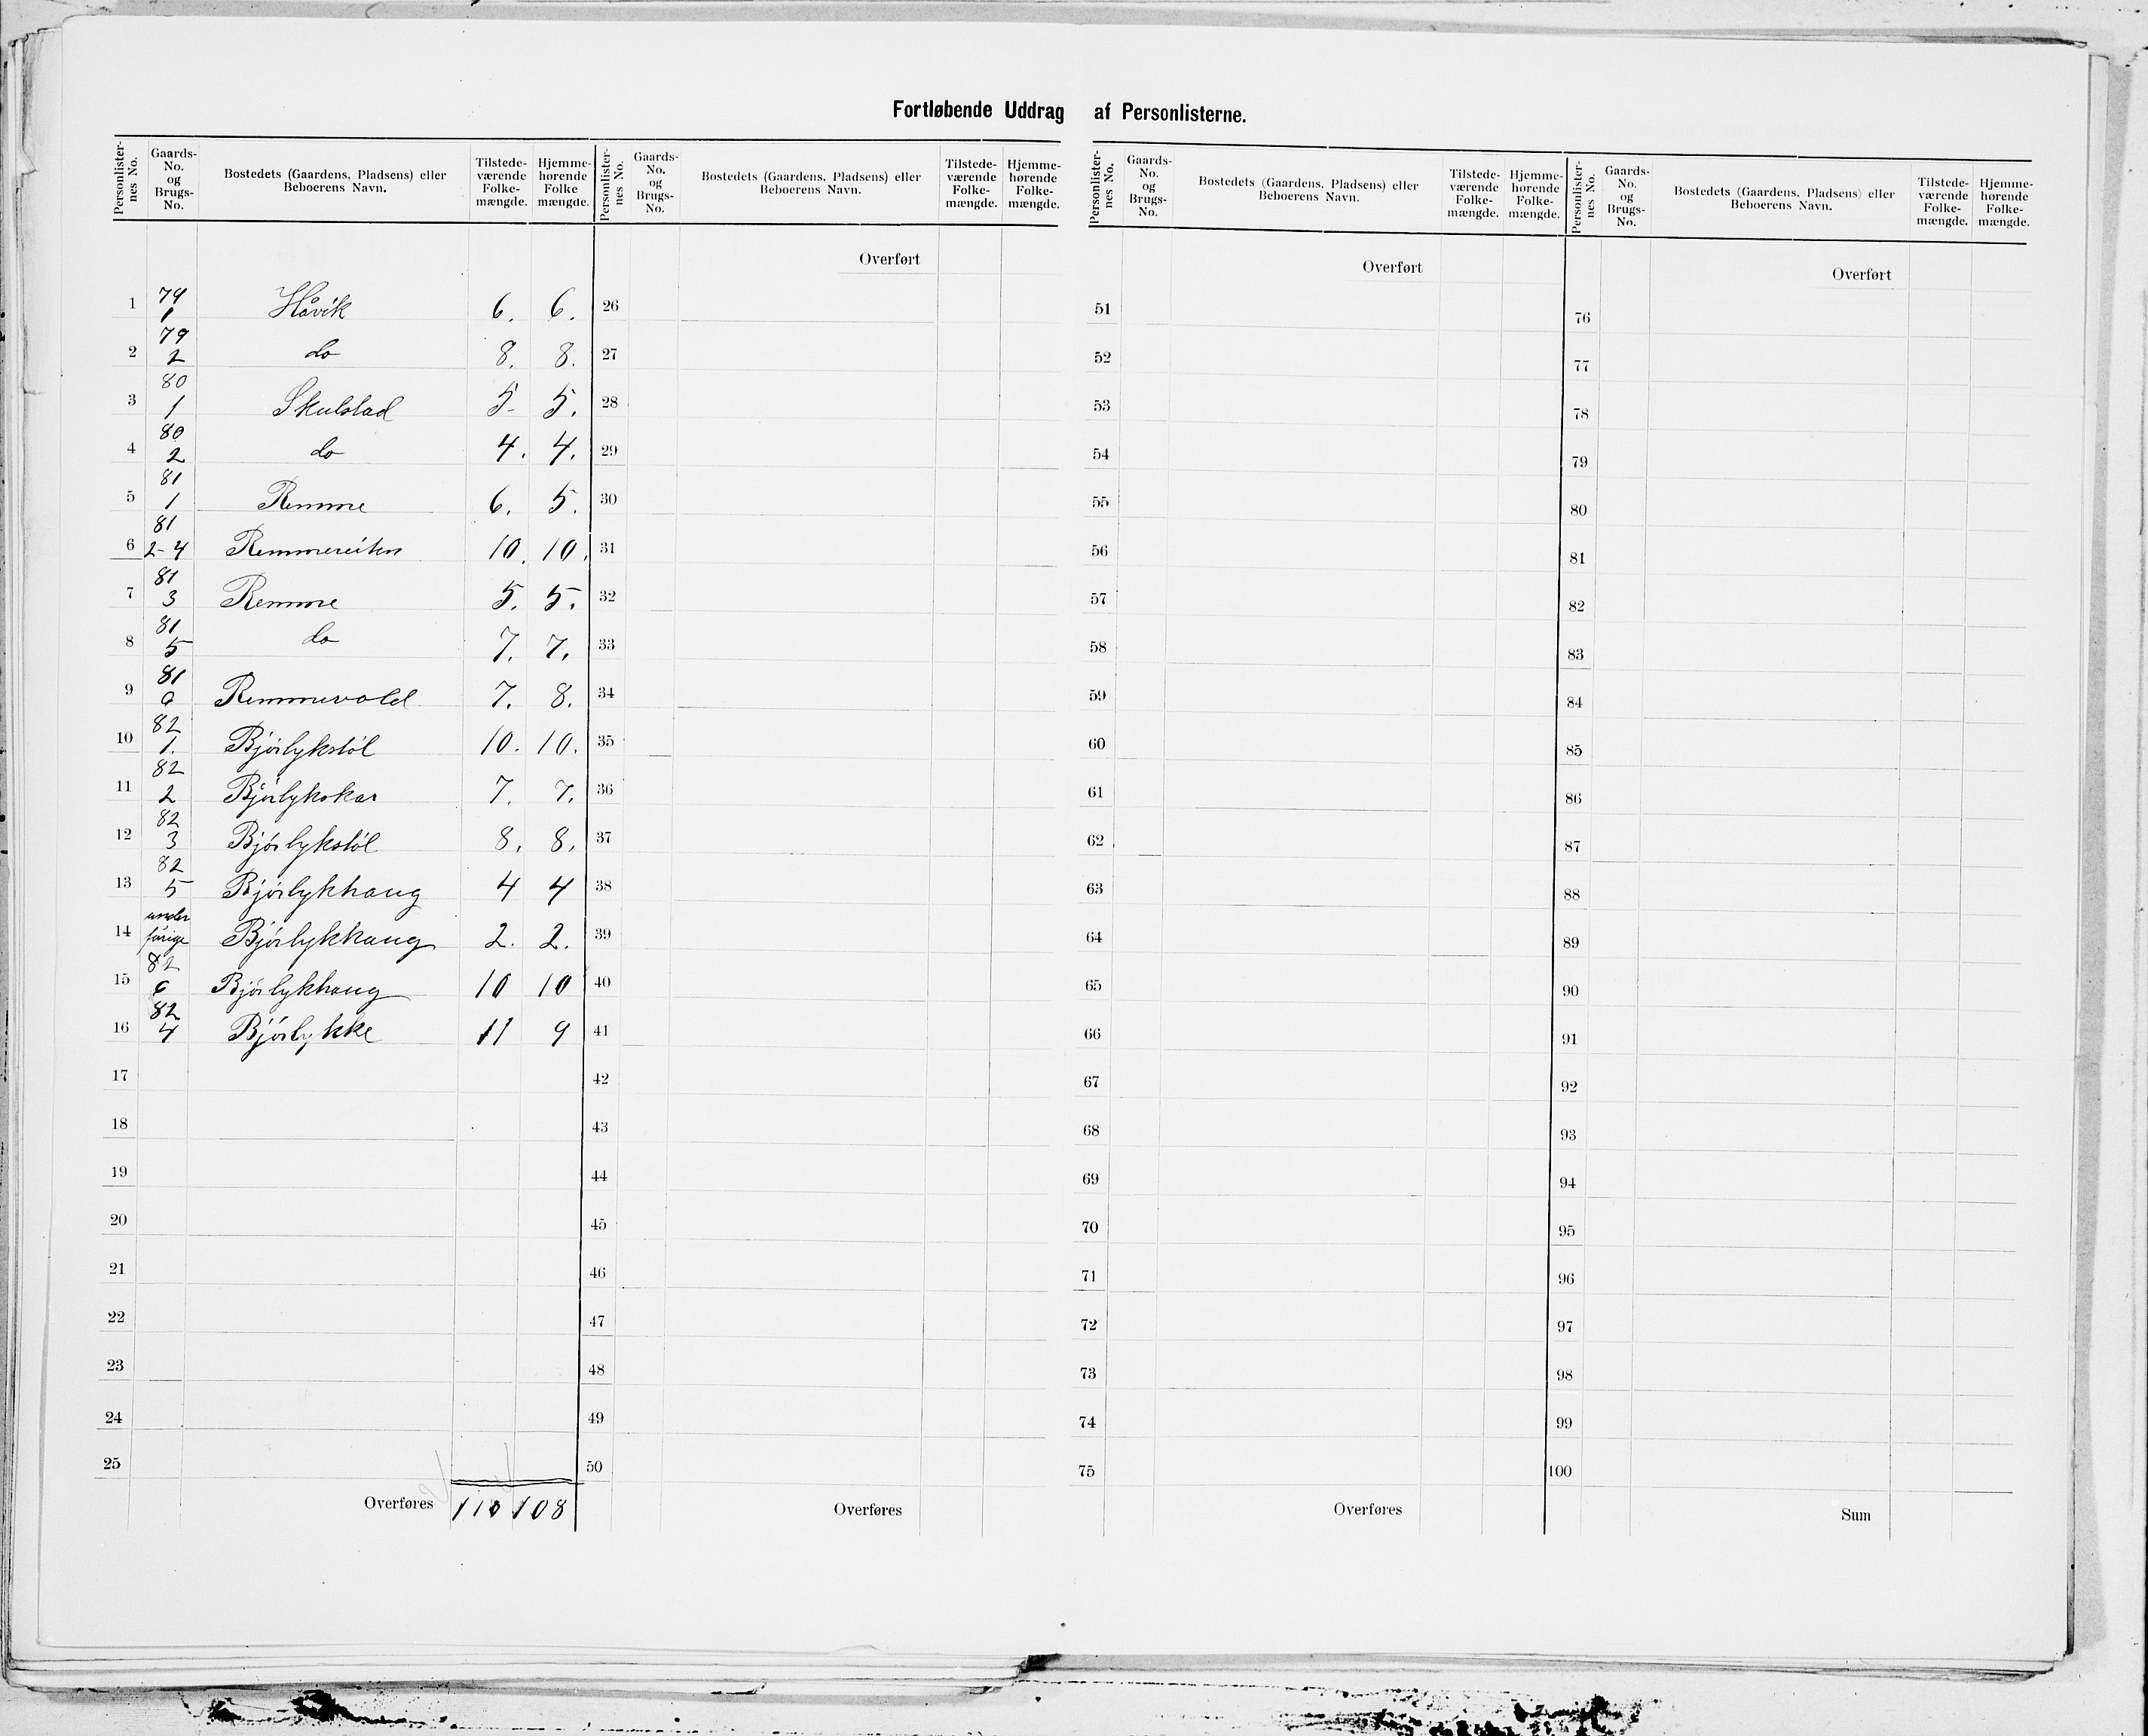 Fortløbende Uddrag af Personlisterne.
Personlister-nes No. | Gaards-No. og Brugs-No. | Bostedets (Gaardens, Pladsens) eller Beboerens Navn. | Tilstede-værende Folke-mængde. | Hjemme-hørende Folke mængde.
Personlister-nes No. | Gaards-No. og Brugs-No. | Bostedets (Gaardens, Pladsens) eller Beboerens Navn. | Tilstede-værende Folke-mængde. | Hjemme-hørende Folke-mængde.
Personlister-nes No. | Gaards-No. og Brugs-No. | Bostedets (Gaardens, Pladsens) eller Beboerens Navn. | Tilstede-værende Folke-mængde. | Hjemme-hørende Folke-mængde.
Personlister-nes No. | Gaards-No. og Brugs-No. | Bostedets (Gaardens, Pladsens) eller Beboerens Navn. | Tilstede-værende Folke-mængde. | Hjemme-hørende Folke-mængde.
1 79/1 Håvik 6. 6.
2 79/2 do 8. 8.
3 80/1 Skulstad 5- 5.
4 80/2 do 4. 4.
5 81/1 Remme 6. 5.
6 81/2-4 Remmereiten 10. 10.
7 81/3 Remme 5. 5.
8 81/5 do 7. 7.
9 81/6 Remmevold 7. 8.
10 82/1. Bjørlykstøl 10. 10.
11 82/2 Bjørlykokar 7. 7.
12 82/3 Bjørlykstøl 8. 8.
13 82/5 Bjørlykhaug 4 4
14 under forige Bjørlykhaug 2. 2.
15 82/6 Bjørlykhaug 10 10
16 82/4 Bjørlykke 11 9
17
18
19
20
21
22
23
24
25
Overføres 110 108
Overført
26
27
28
29
30
31
32
33
34
35
36
37
38
39
40
41
42
43
44
45
46
47
48
49
50
Overføres
Overført
51
52
53
54
55
56
57
58
59
60
61
62
63
64
65
66
67
68
69
70
71
72
73
74
75
Overføres
Overført
76
77
78
79
80
81
82
83
84
85
86
87
88
89
90
91
92
93
94
95
96
97
98
99
100
Sum